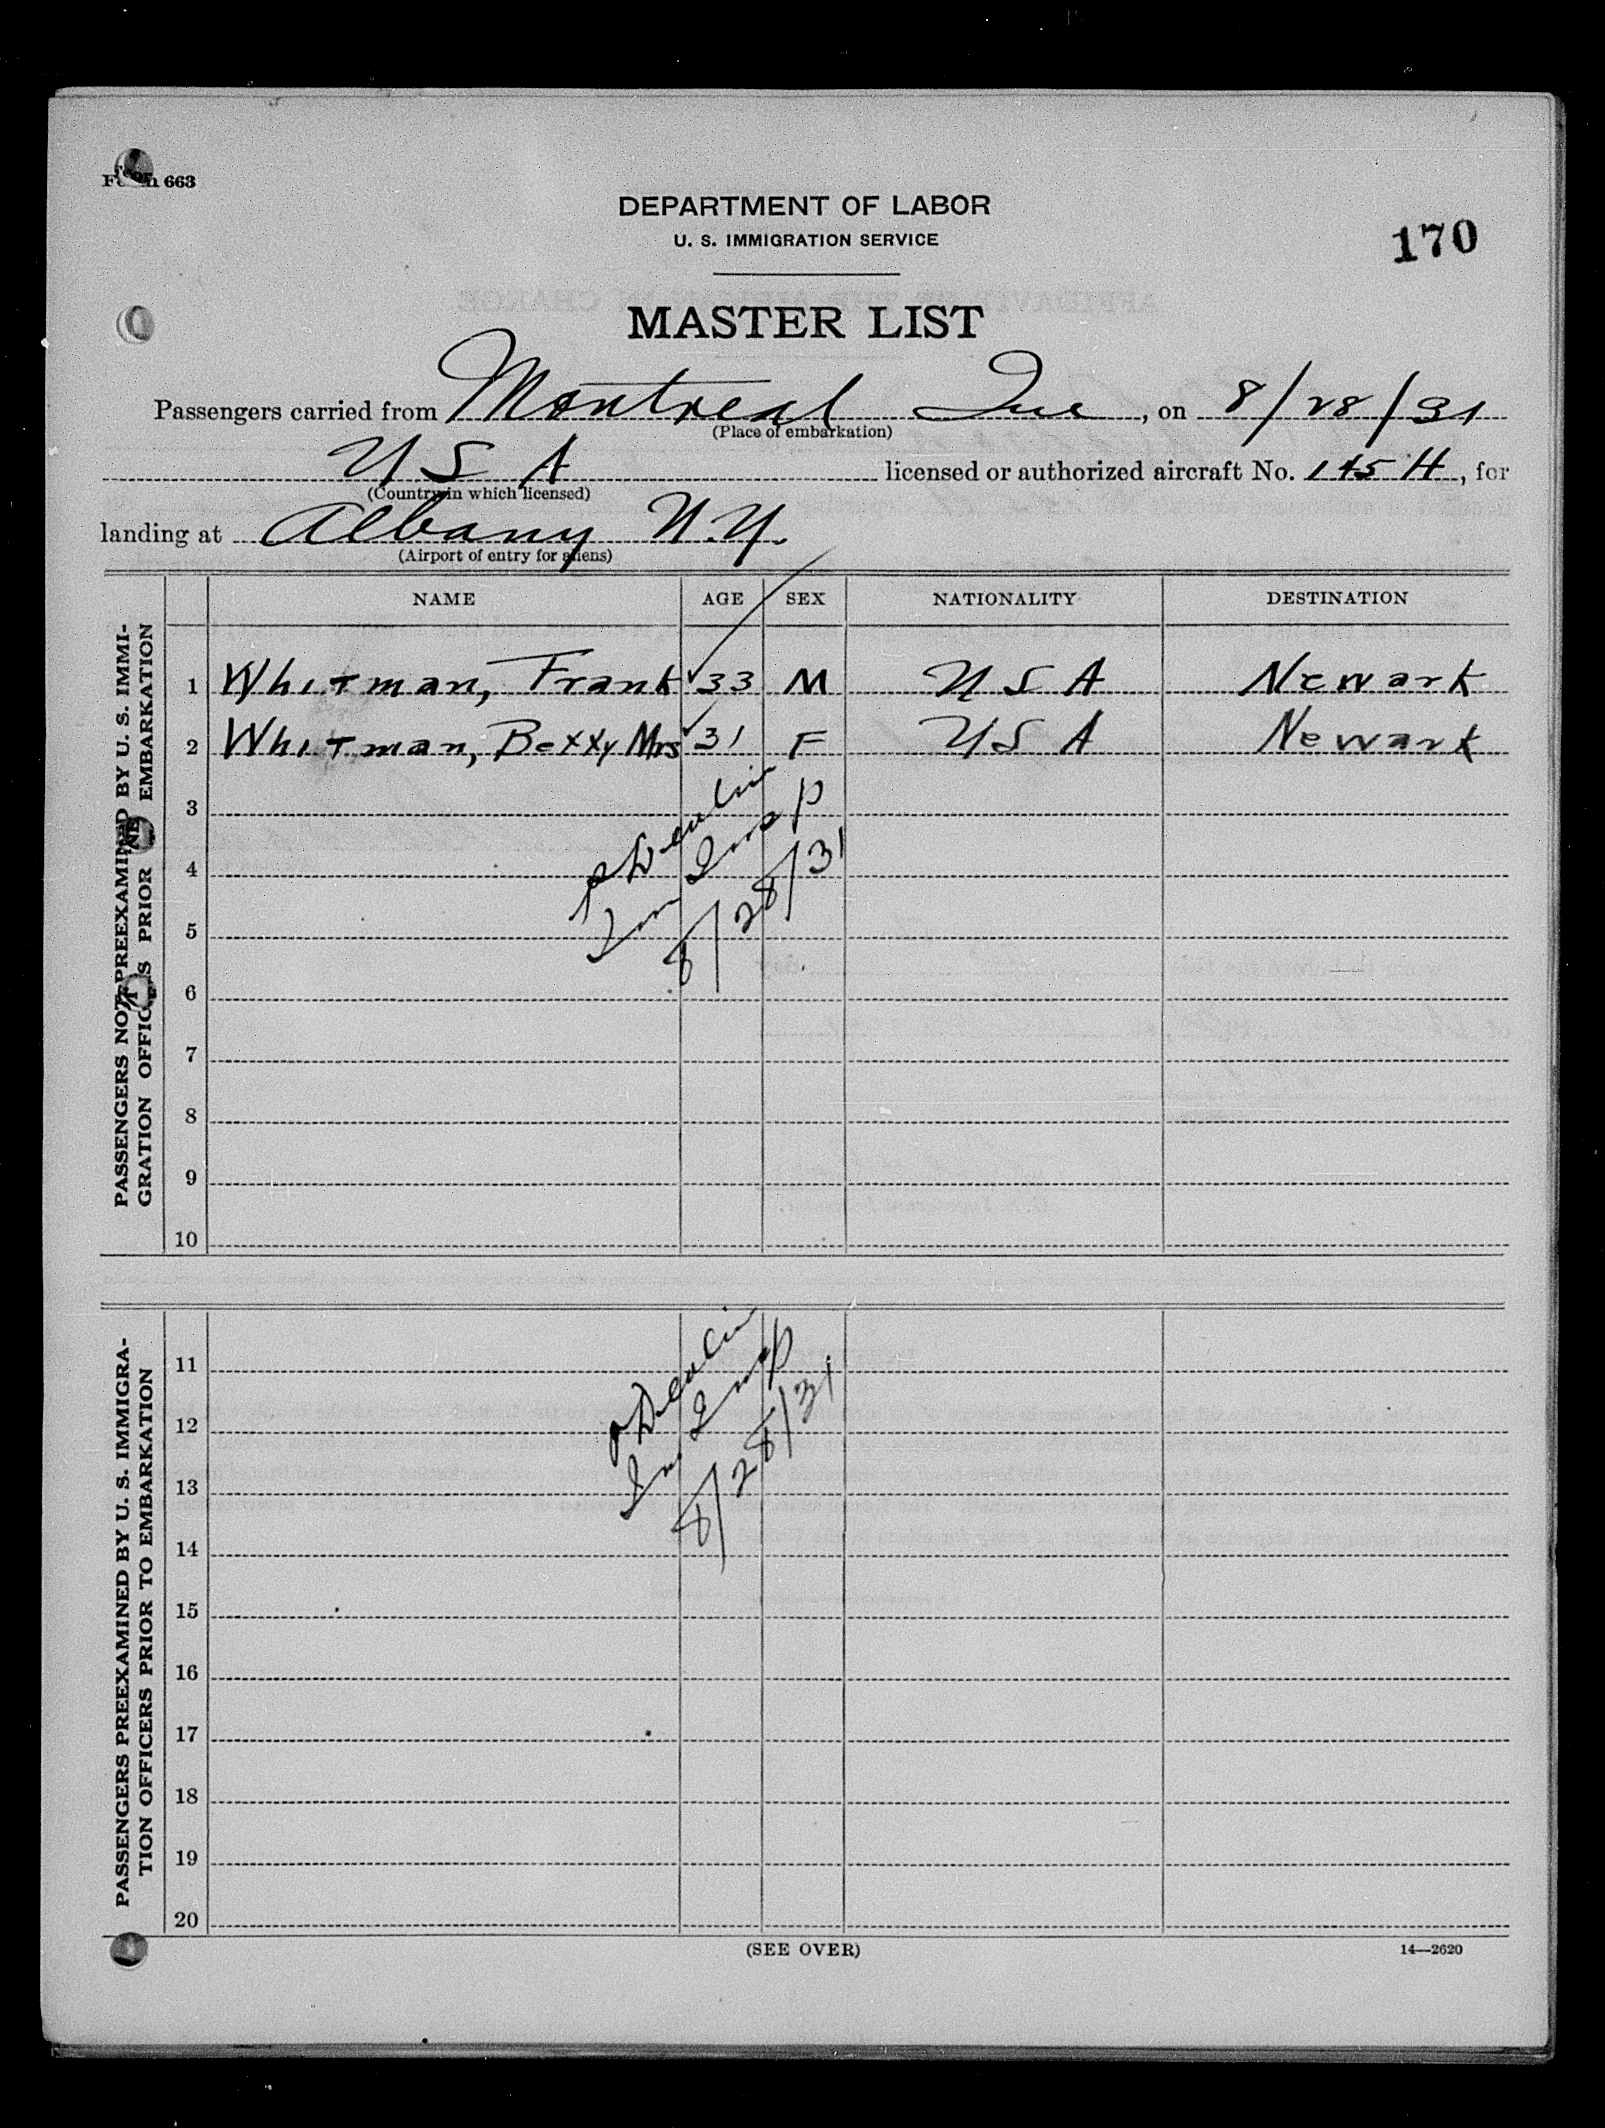 Form 663
DEPARTMENT OF LABOR
U. S. IMMIGRATION SERVICE
170
MASTER LIST
Passengers carried from Montreal Que, on 8/28/31
(Place of embarkation)
USA licensed or authorized aircraft No. 145 H, for
(Country in which licensed)
landing at Albany N.Y.
(Airport of entry for aliens)
NAME AGE SEX NATIONALITY DESTINATION
PASSENGERS NOT PREEXAMINED BY U. S. IMMI-
GRATION OFFICERS PRIOR TO EMBARKATION
1 Whitman, Frank 33 M USA Newark
2 Whitman, Betty Mrs 31 F USA Newark
3
4
5
6
7
8
9
10
Imm Insp
8/28/31
PASSENGERS PREEXAMINED BY U. S. IMMIGRA-
TION OFFICERS PRIOR TO EMBARKATION
11
12
13
14
15
16
17
18
19
20
Imm Insp
8/28/31
(SEE OVER)
14—2620